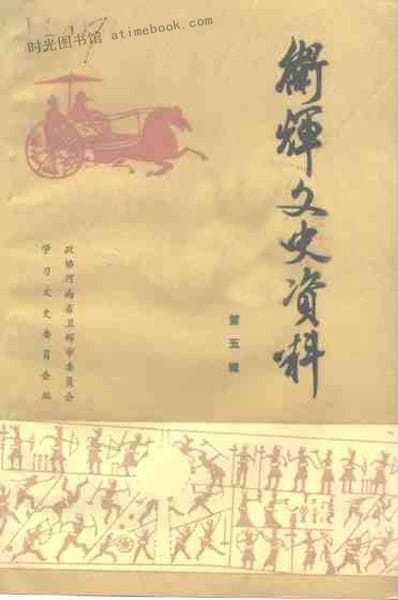 时光图书馆 atimebook.com
衛輝文史资料
第五辑
政协河南省卫辉市委员会
学习文史委员会编